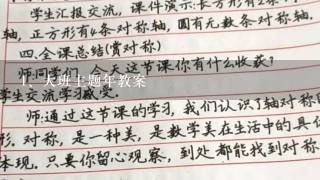 学生汇报交流, 课件演示:长方形有2条
轴, 正方形有4条对称轴, 圆有无数条对称轴.
四.全课总结(赏对称)
师:同学们, 今天这节课你有什么收获?
1、大班主题年教案
学生交流学习感受.
师:通过这节课的学习, 我们认识了轴对称
形. 对称, 是一种美, 是数学美在生活中的具
体现. 只要你留心观察, 到处都能找到对称